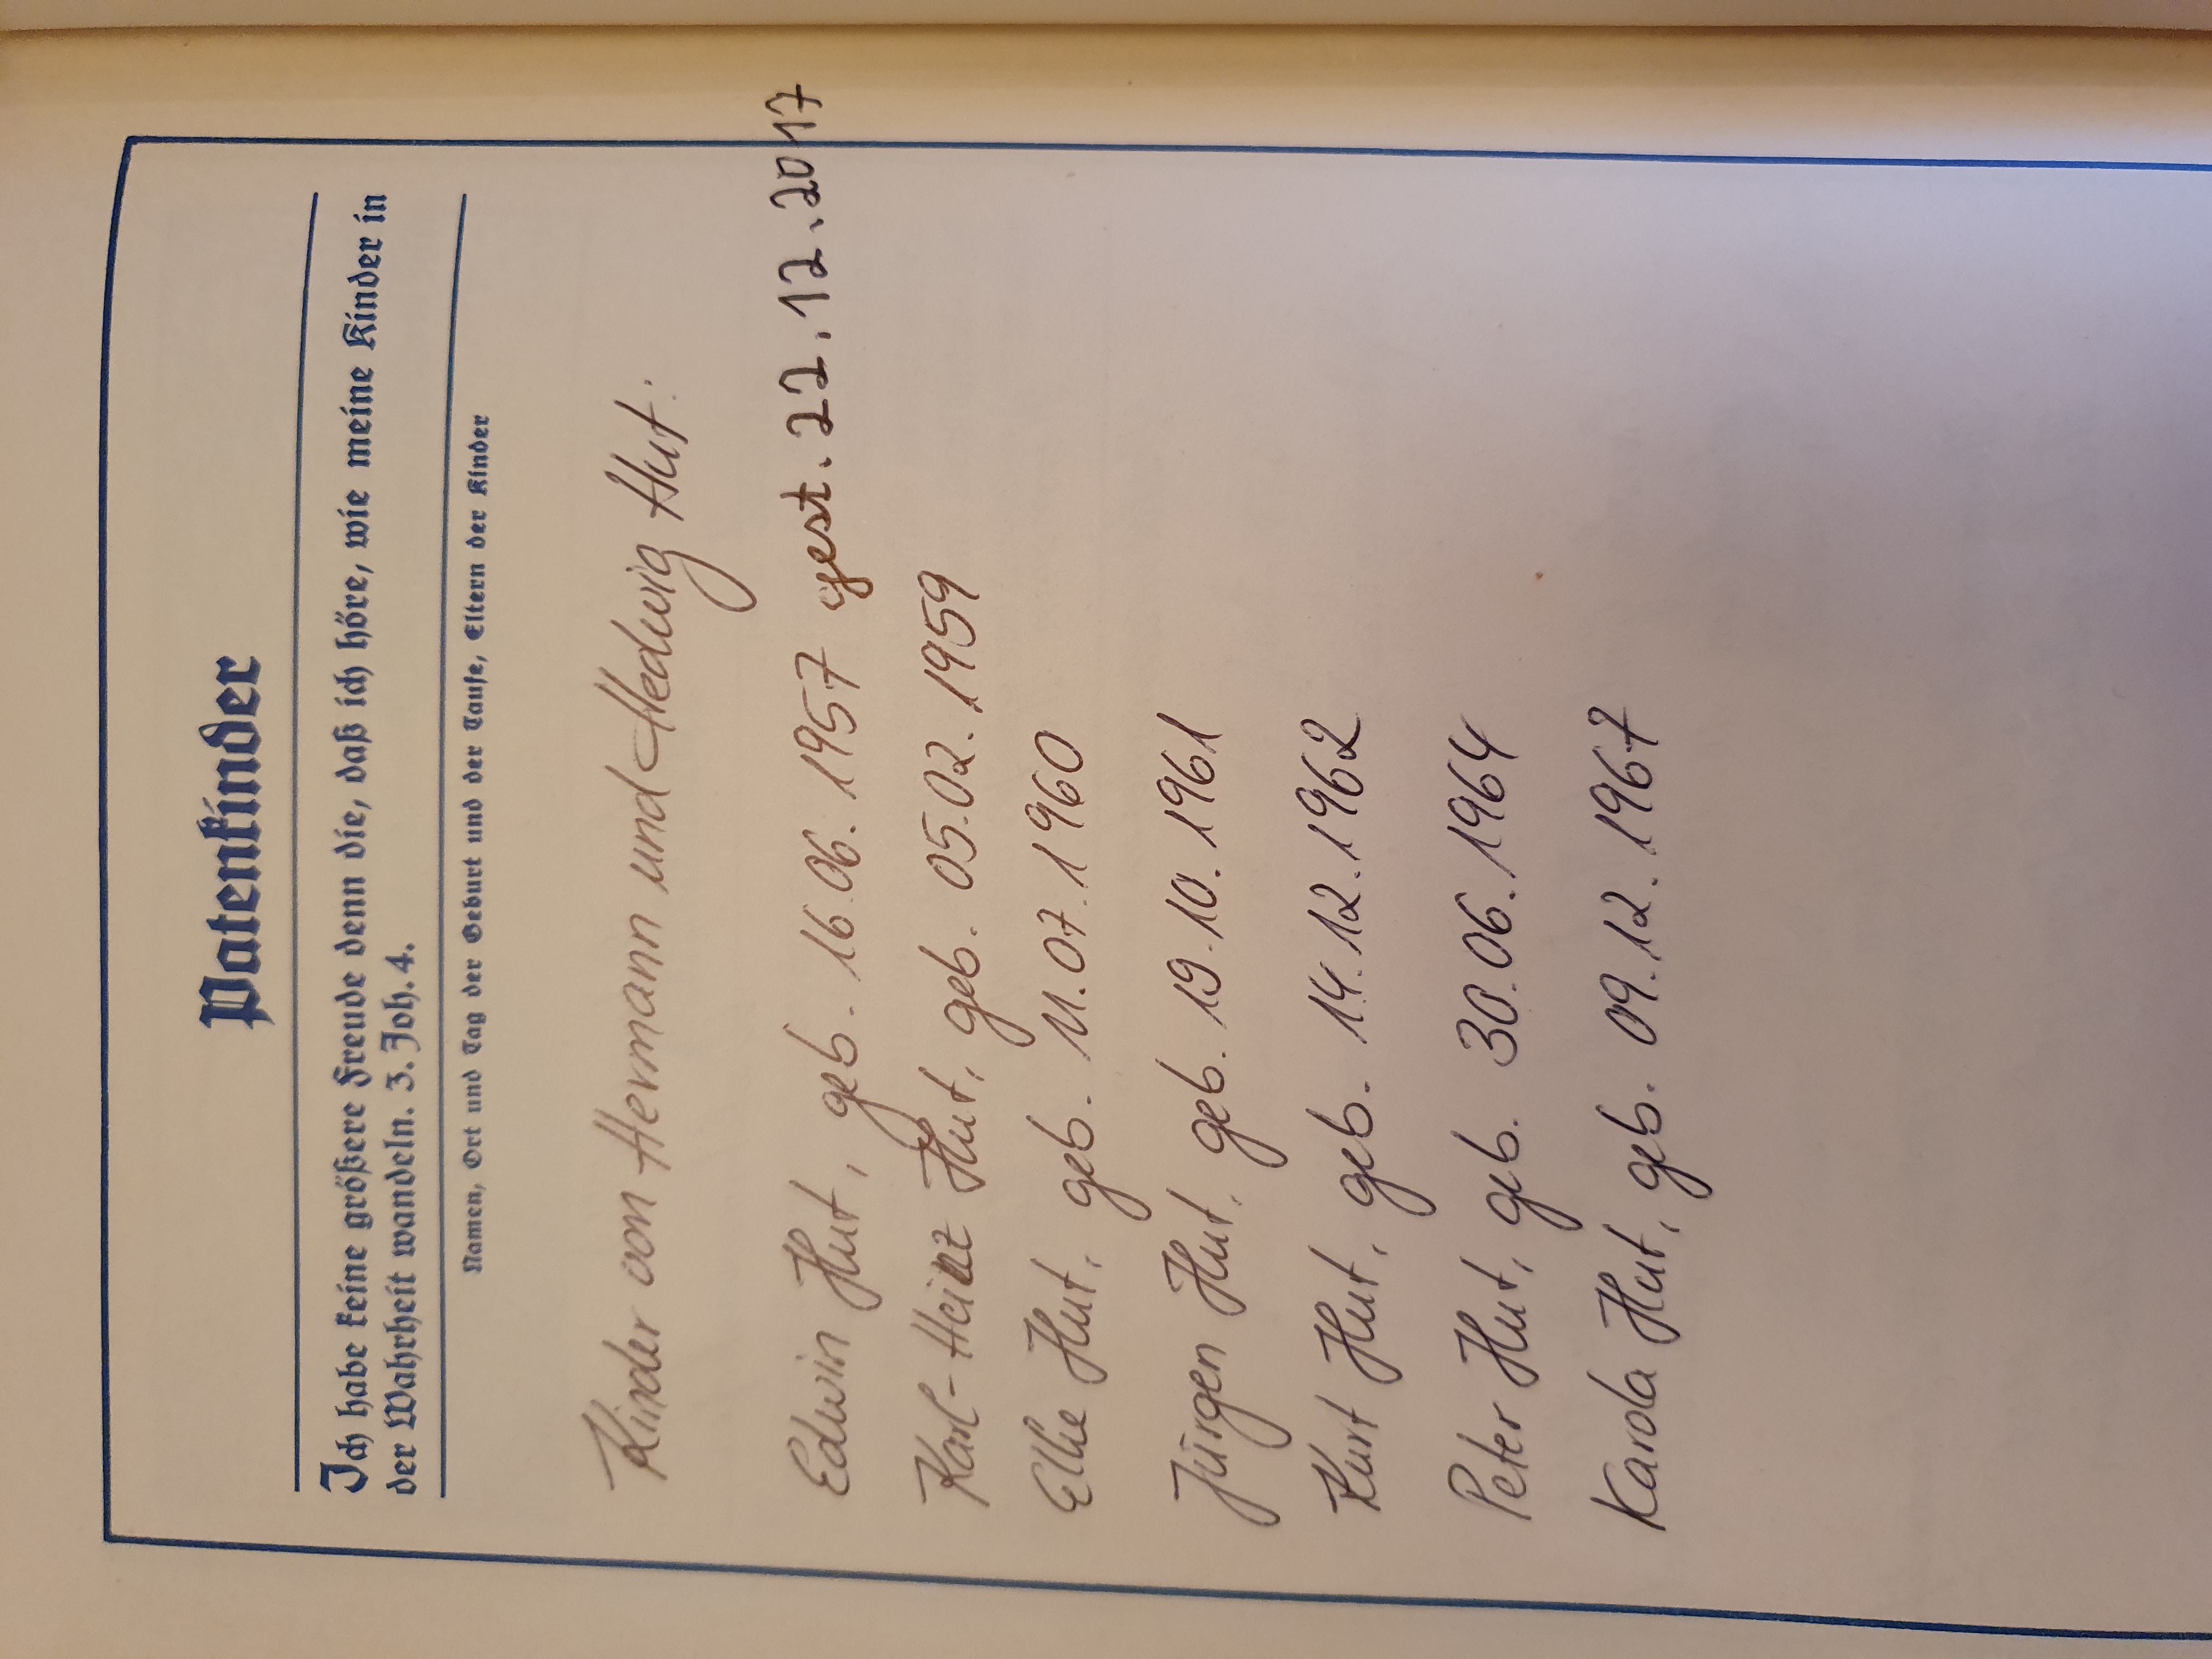 Patenkinder
Ich habe keine größere Freude denn die, daß ich höre, wie meine Kinder in
der Wahrheit wandeln. 3. Joh. 4.
Namen, Ort und Tag der Geburt und der Taufe, Eltern der Kinder
Kinder von Hermann und Hedwig Hut.
Edwin Hut, geb. 16.06.1957 gest. 22.12.2017
Karl-Heinz Hut, geb. 05.02.1959
Elke Hut, geb. 11.07.1960
Jürgen Hut, geb. 19.10.1961
Kurt Hut, geb. 14.12.1962
Peter Hut, geb. 30.06.1964
Karola Hut, geb. 09.12.1967